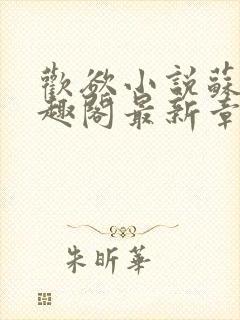 歡欲小說蘇
趣閣最新章
朱昕華